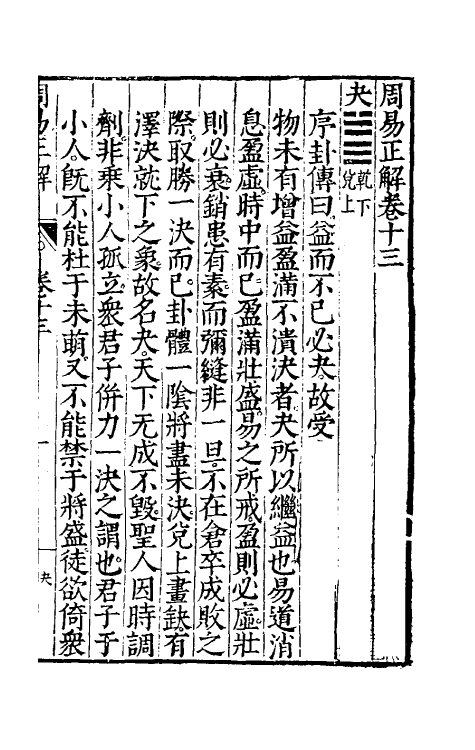 周易正解卷十三
夬 乾下 兌上
序卦傳曰益而不已必夬故受
物未有增益盈滿不潰決者夬所以繼益也易道消
息盈虛時中而已盈滿壯盛易之所戒盈則必虛壯
則必衰銷患有素而彌縫非一旦不在倉卒成敗之
際取勝一決而已卦體一陰將盡未決兌上畫缺有
澤決就下之象故名夬天下无成不毀聖人因時調
劑非乘小人孤立衆君子併力一決之謂也君子于
小人旣不能杜于未萌又不能禁于將盛徒欲倚衆
周易正解 卷十三 一 夬